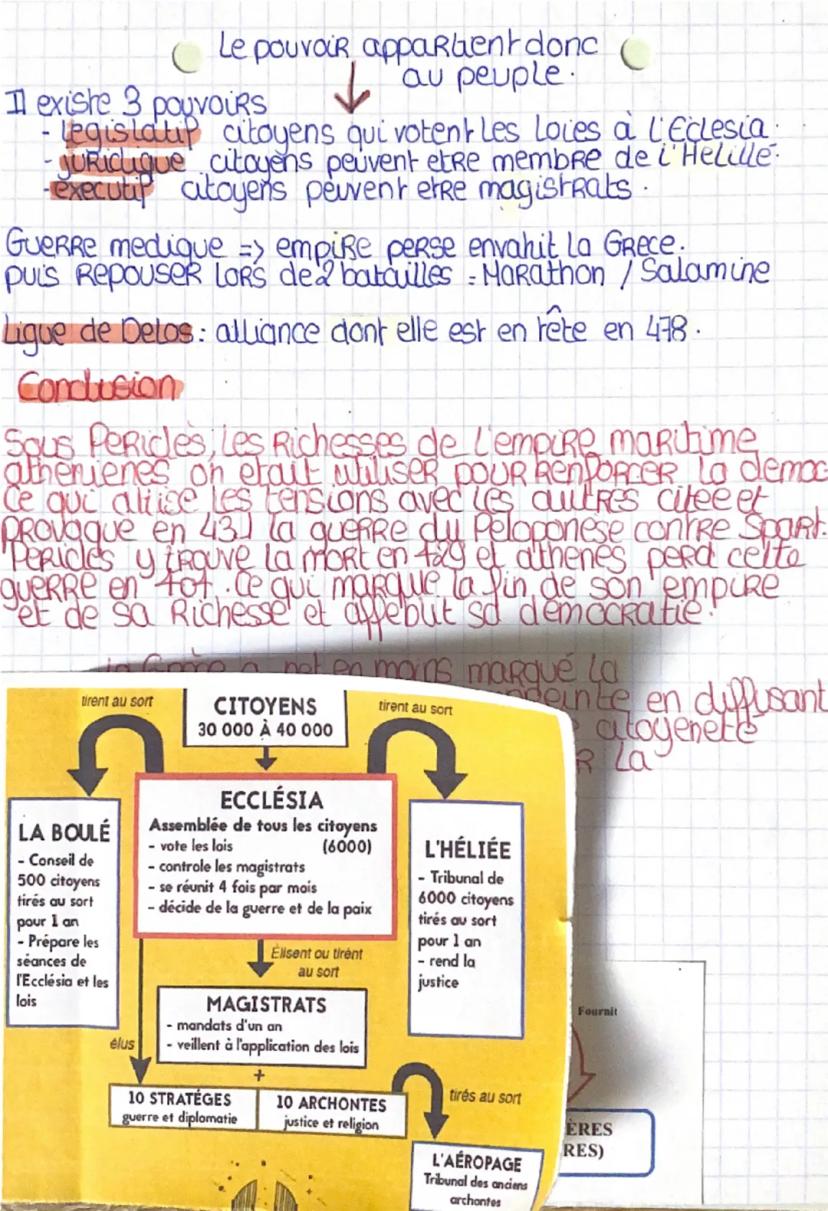 Le pouvoir appartient donc
au peuple.
Il existe 3 pouvoirs
- legislatif citoyens qui votent les loies à l'Eclesia.
- juridique citoyens peuvent etre membre de l'Helillé.
- executif citoyens peuvent etre magistrats.
Guerre medique => empire perse envahit la Grece.
puis Repouser lors de 2 batailles : Marathon / Salamine
Ligue de Delos : alliance dont elle est en tête en 478.
Conclusion
Sous Pericles, les Richesses de l'empire maritime
athenienes on etait utiliser pour Renforcer la democ
Ce qui altise les tensions avec les autres citee et
provoque en 431 la guerre du Peloponese contre Spart.
Pericles y trouve la mort en 429 et athenes perd cette
guerre en 404. Ce qui marque la fin de son empire
et de sa Richesse et affebut sa democratie.
la Grèce a net en moins marqué la
en diffusant
citoyeneté
R la
tirent au sort
CITOYENS
30 000 À 40 000
tirent au sort
ECCLÉSIA
Assemblée de tous les citoyens
- vote les lois (6000)
- controle les magistrats
- se réunit 4 fois par mois
- décide de la guerre et de la paix
LA BOULÉ
- Conseil de
500 citoyens
tirés au sort
pour 1 an
- Prépare les
séances de
l'Ecclésia et les
lois
L'HÉLIÉE
- Tribunal de
6000 citoyens
tirés au sort
pour 1 an
- rend la
justice
Élisent ou tirent
au sort
MAGISTRATS
- mandats d'un an
- veillent à l'application des lois
élus
+
10 STRATÉGES
guerre et diplomatie
10 ARCHONTES
justice et religion
tirés au sort
L'AÉROPAGE
Tribunal des anciens
archontes
Fournit
ÈRES
RES)